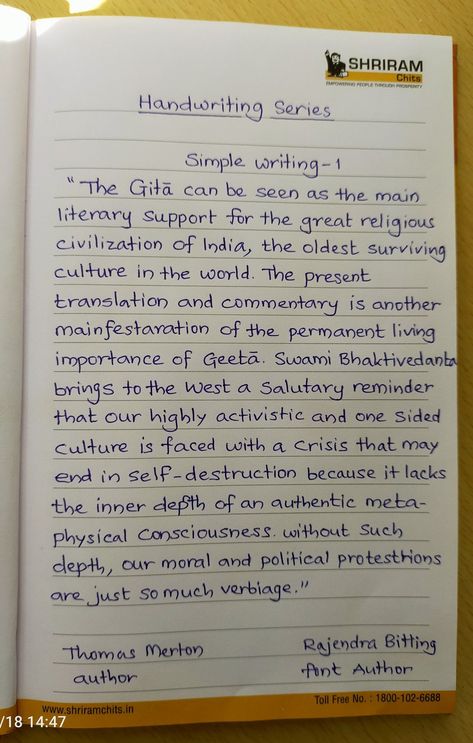 SHRIRAM
Chits
EMPOWERING PEOPLE THROUGH PROSPERITY
Handwriting Series
Simple writing-1
"The Gitā can be seen as the main
literary support for the great religious
civilization of India, the oldest surviving
culture in the world. The present
translation and commentary is another
mainfestaration of the permanent living
importance of Geetā. Swami Bhaktivedanta
brings to the West a Salutary reminder
that our highly activistic and one sided
culture is faced with a crisis that may
end in self-destruction because it lacks
the inner depth of an authentic meta-
physical consciousness. without such
depth, our moral and political protesthions
are just so much verbiage."
Thomas Merton
author
Rajendra Bitting
font Author
www.shriramchits.in
Toll Free No. : 1800-102-6688
/18 14:47